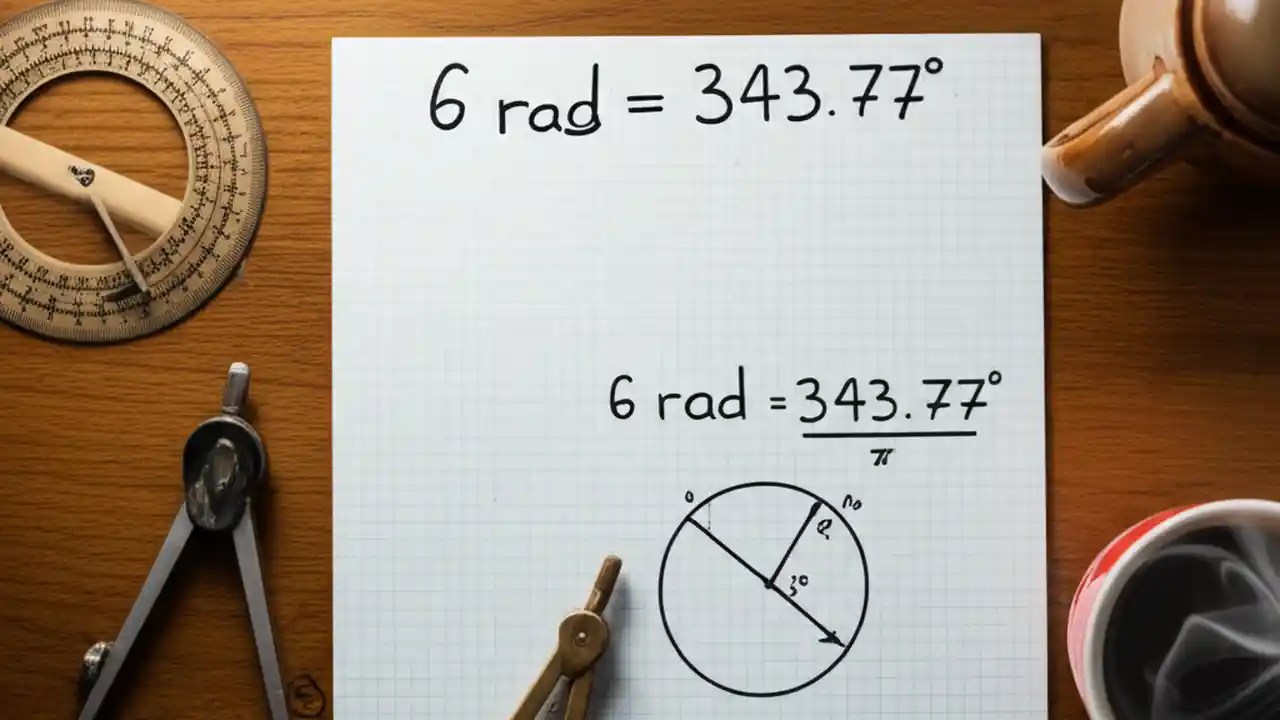 6 rad = 343.77°
6 rad = 343.77°
π
3°